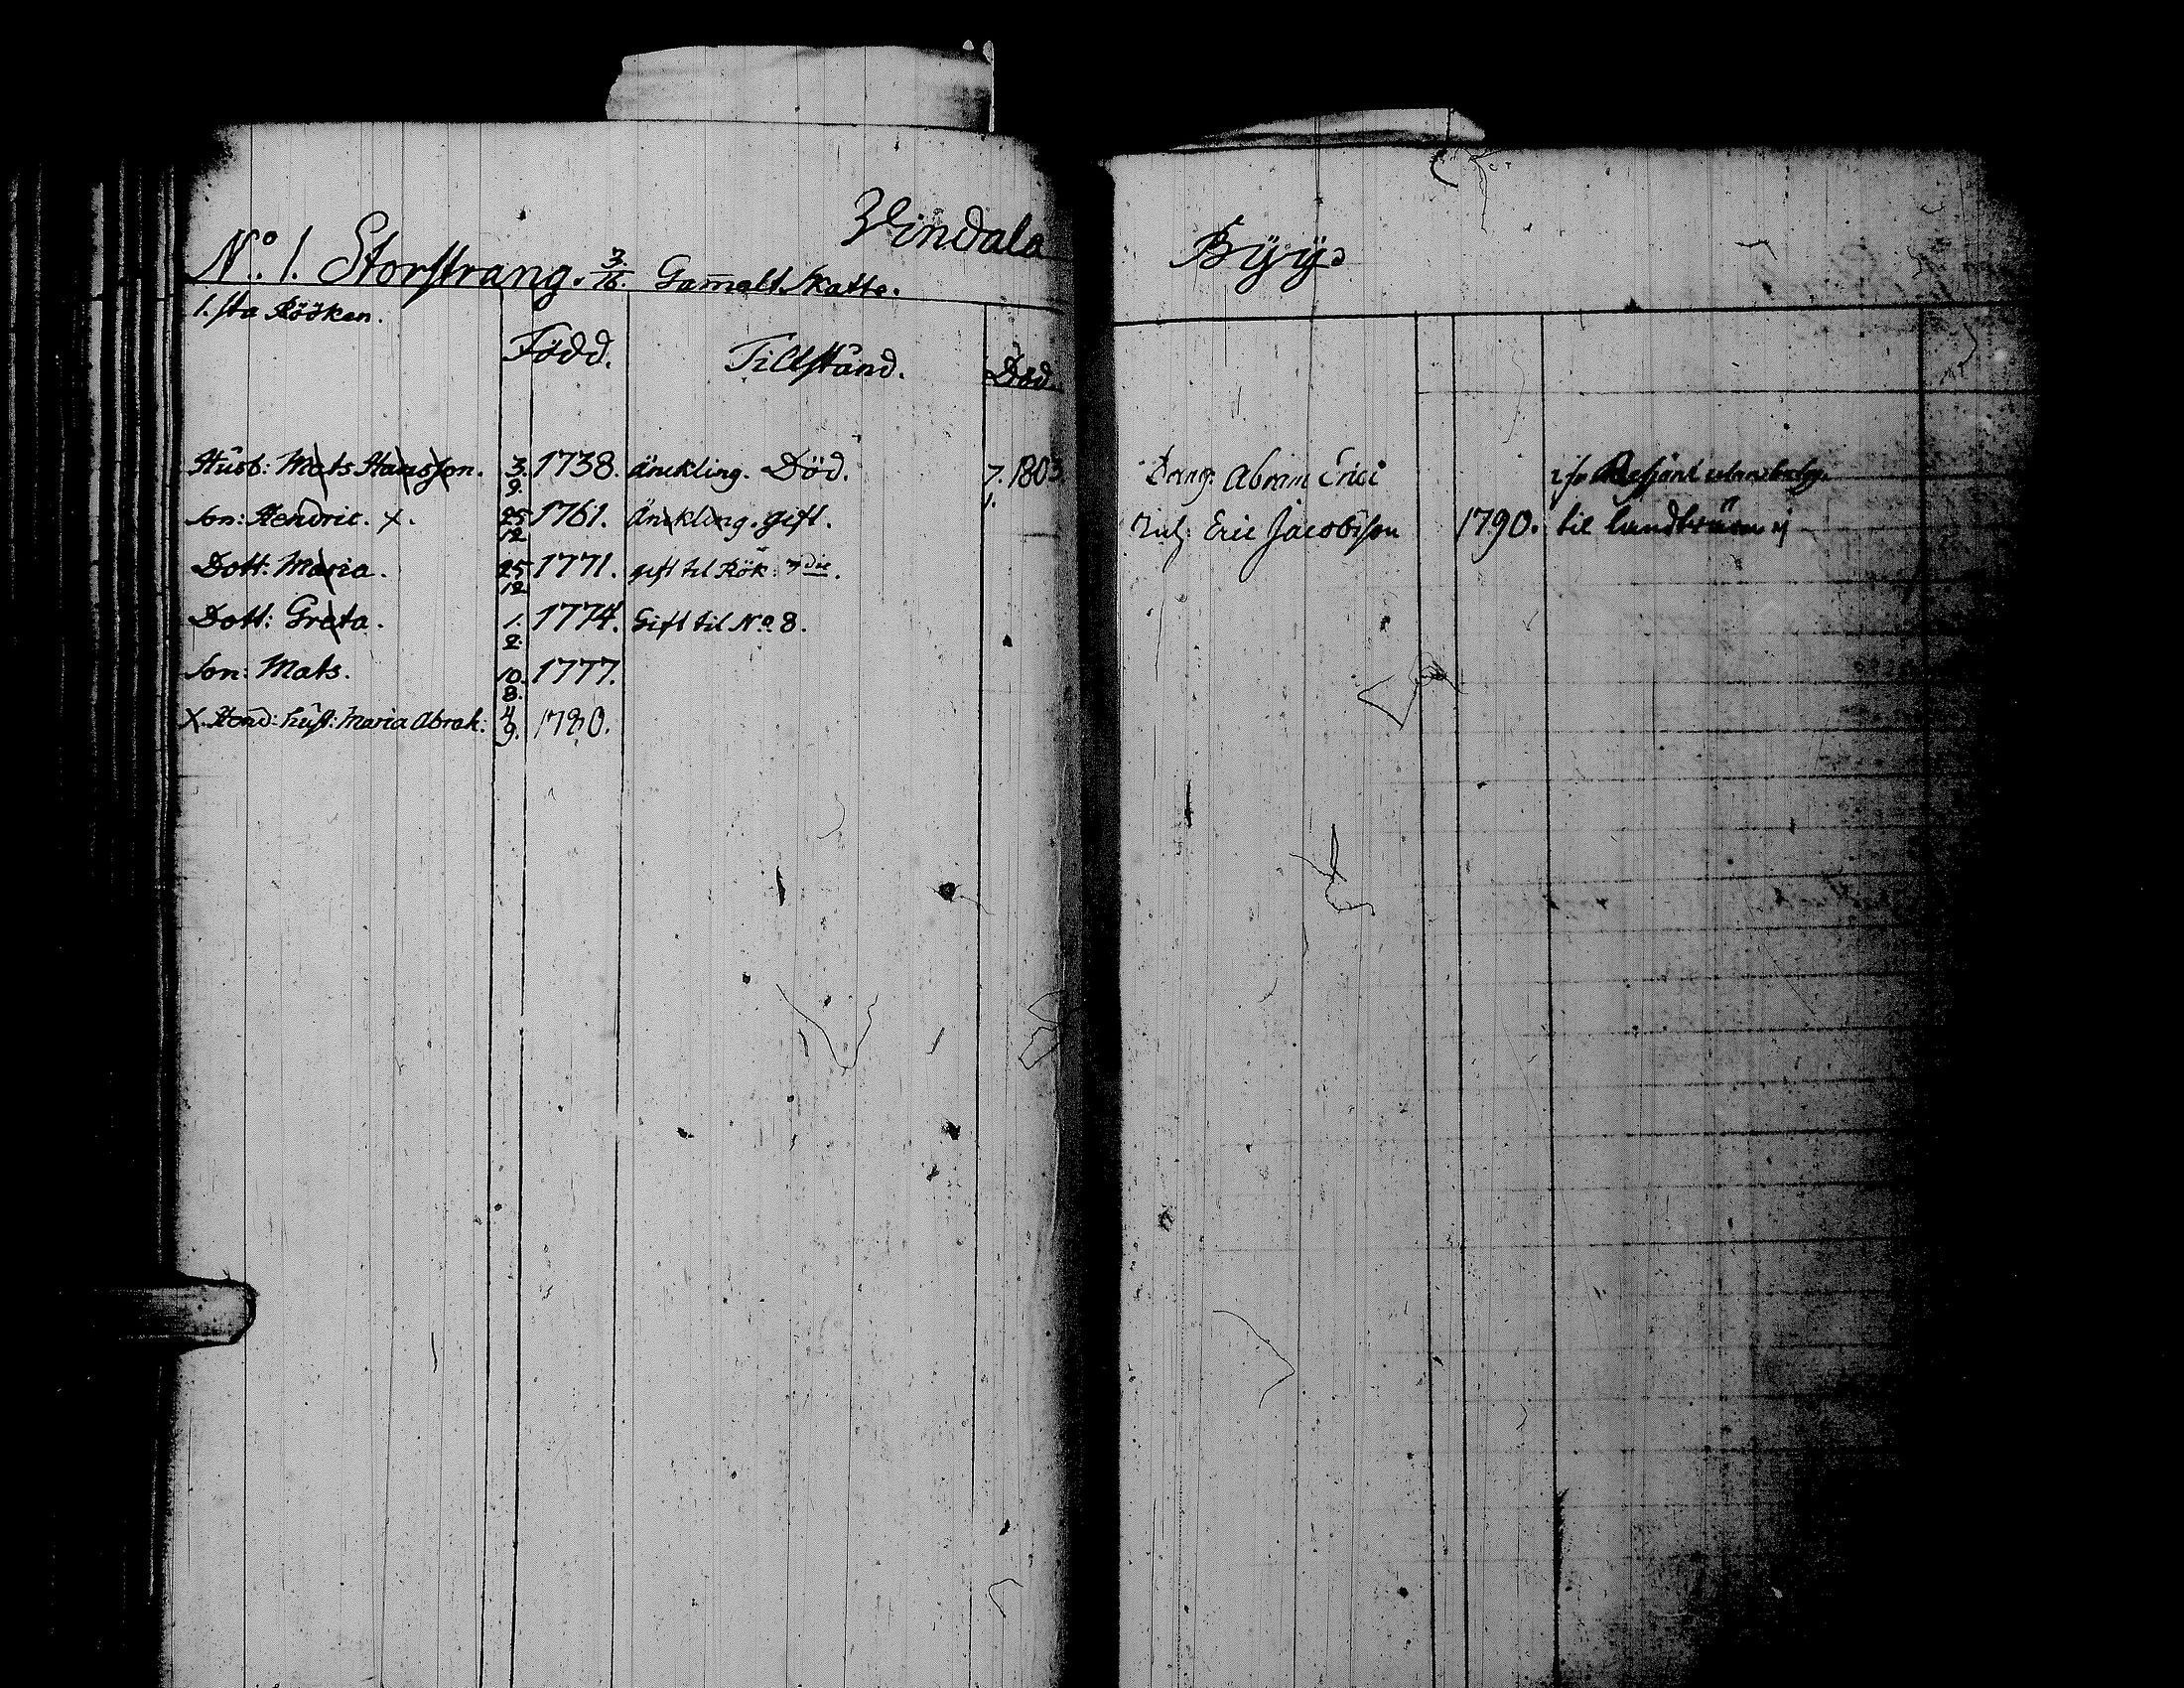 Vindala Byÿ
No. 1. Storstrang. 3/16. Gam̄alt Skatte.
1.sta Rööken.
Född. Tillstånd. Död.
Husb: Mats Hansson. 3. 9. 1738. änckling. Död. 7. 1. 1803.
Son: Hendric. x. 25 12 1761. änckling. gift.
Dott: Maria. 25 12 1771. gift til Rök: 7die.
Dott: Greta. 1. 2. 1774. Gift til No 8.
Son: Mats. 10. 8. 1777.
X. Hend: hust: Maria Abrah: 4 9. 1780.
Dräng: Abram Erici
Eric Jacobsson 1790. til